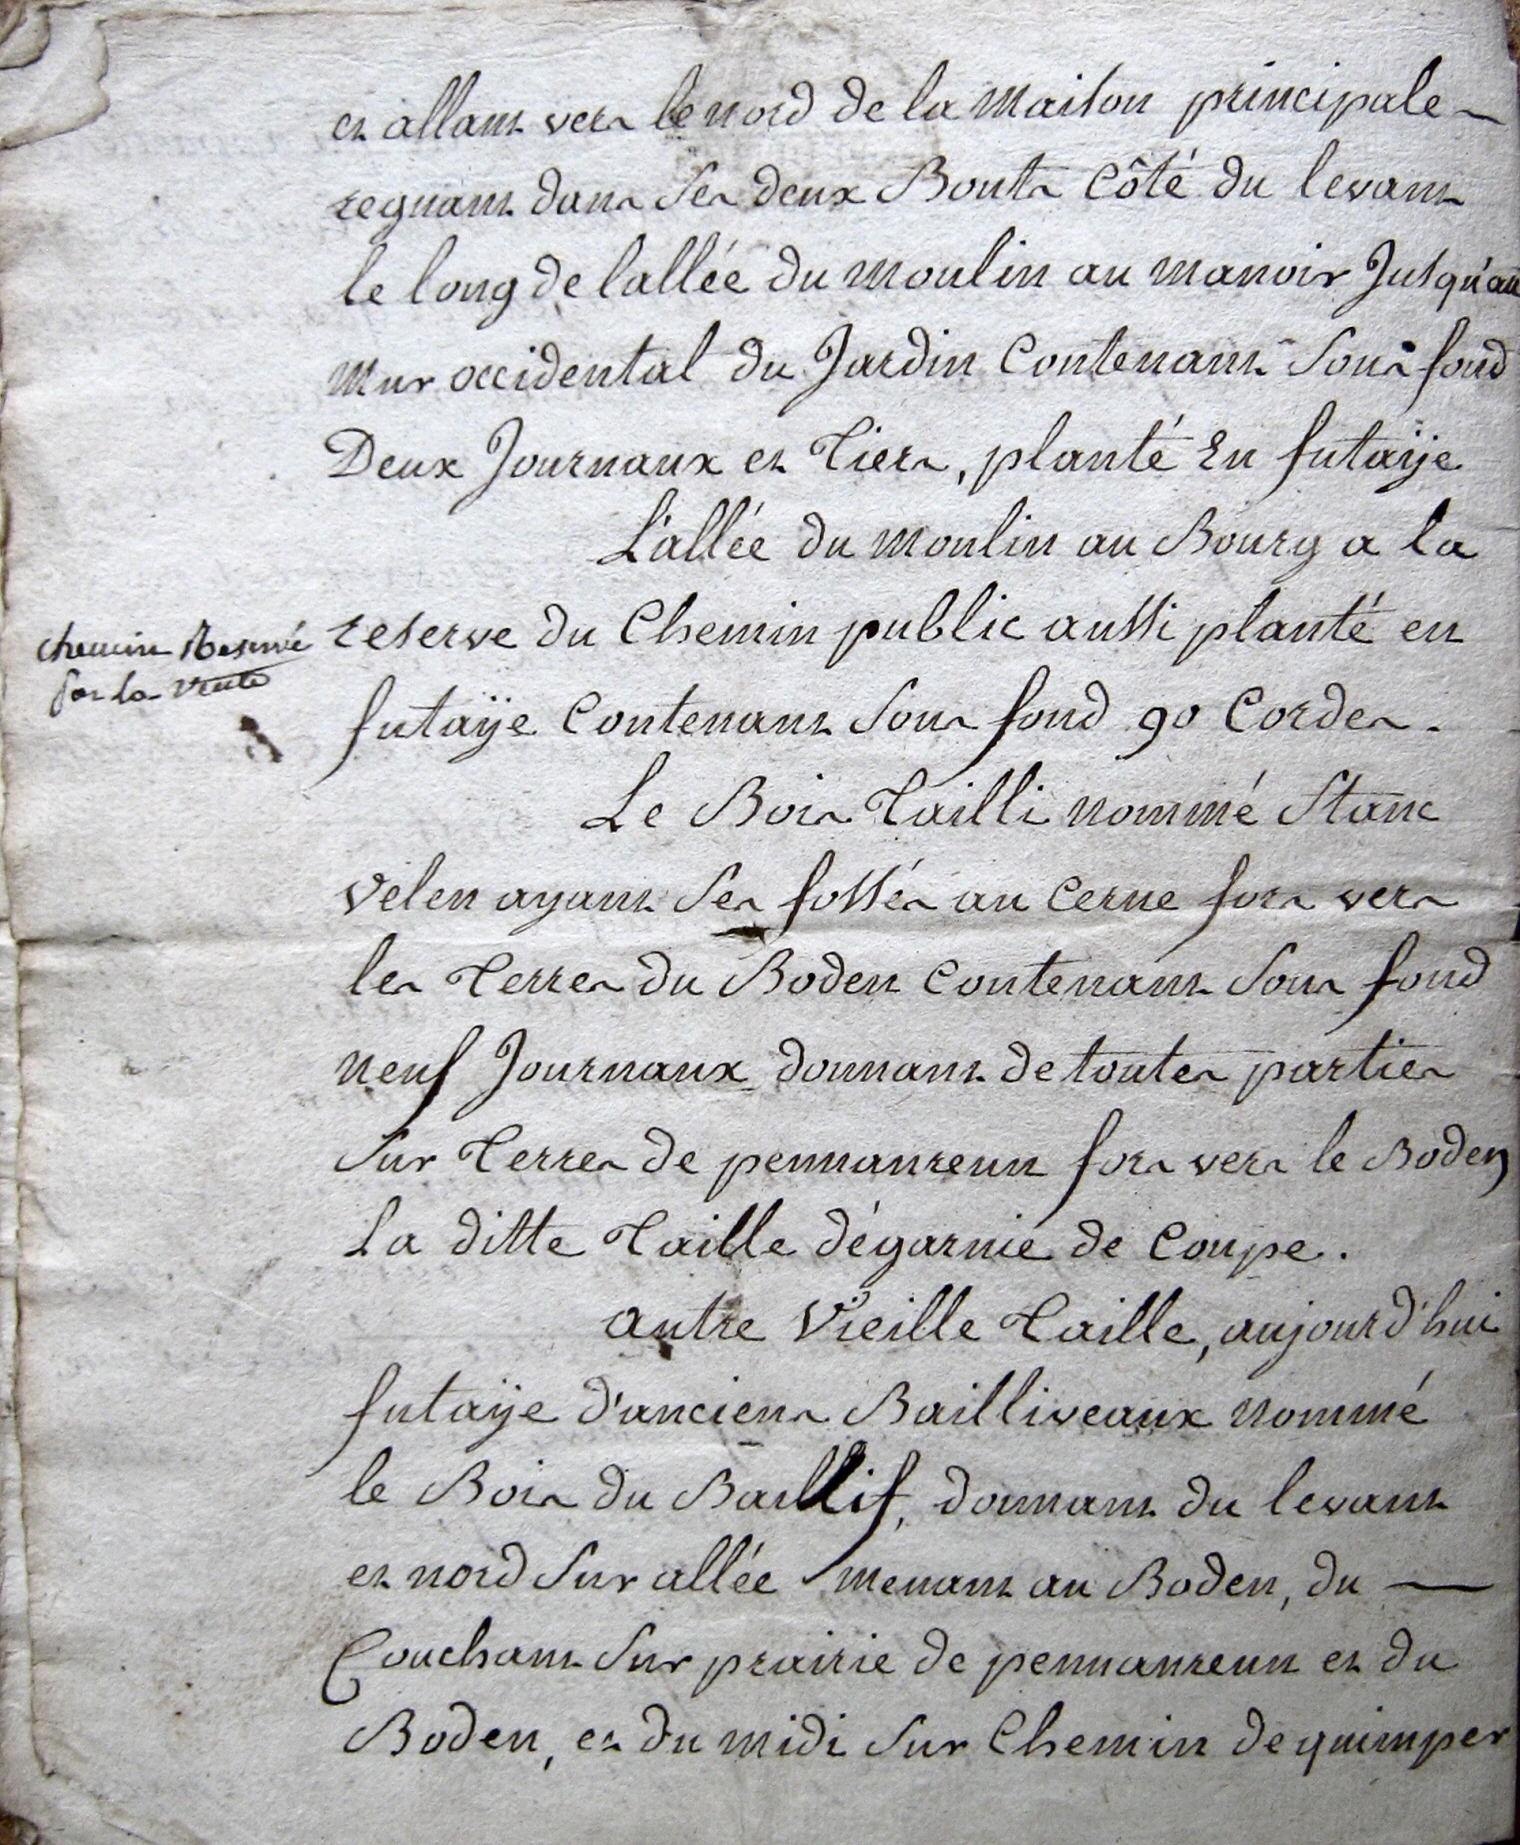 et allant vers le nord de la maison principale
regnant dans ses deux Bouts Côté du levant
le long de lallée du moulin au manoir Jusqu'au
mur occidental du Jardin Contenant sous fond
Deux Journaux et Tiers, planté En futaÿe
L'allée du moulin au Bourg a la
chemin Reservé
par la vente
reserve du Chemin public aussi planté en
futaÿe Contenant sous fond 90 Cordes.
Le Bois Tailli nommé Stanc
velen ayant ses fossés au Cerne fors vers
les Terres du Boden Contenant sous fond
neuf Journaux donnant de toutes parties
sur Terres de pennanreun fors vers le Boden
La ditte Taille dégarnie de Coupe.
autre Vieille Taille, aujourd'hui
futaÿe d'anciens Bailliveaux nommé
le Bois du Baillif, donnant du levant
et nord sur allée menant au Boden, du
Couchant sur prairie de pennanreun et du
Boden, et du midi sur Chemin de quimper